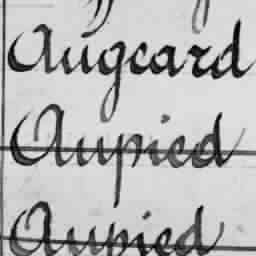 Augeard
Aupied
Aupied